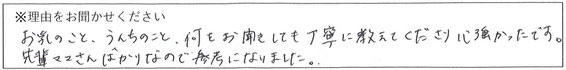 ※理由をお聞かせください
お乳のこと、うんちのこと、何をお聞きしても丁寧に教えてくださり心強かったです。
先輩ママさんばかりなので参考になりました。